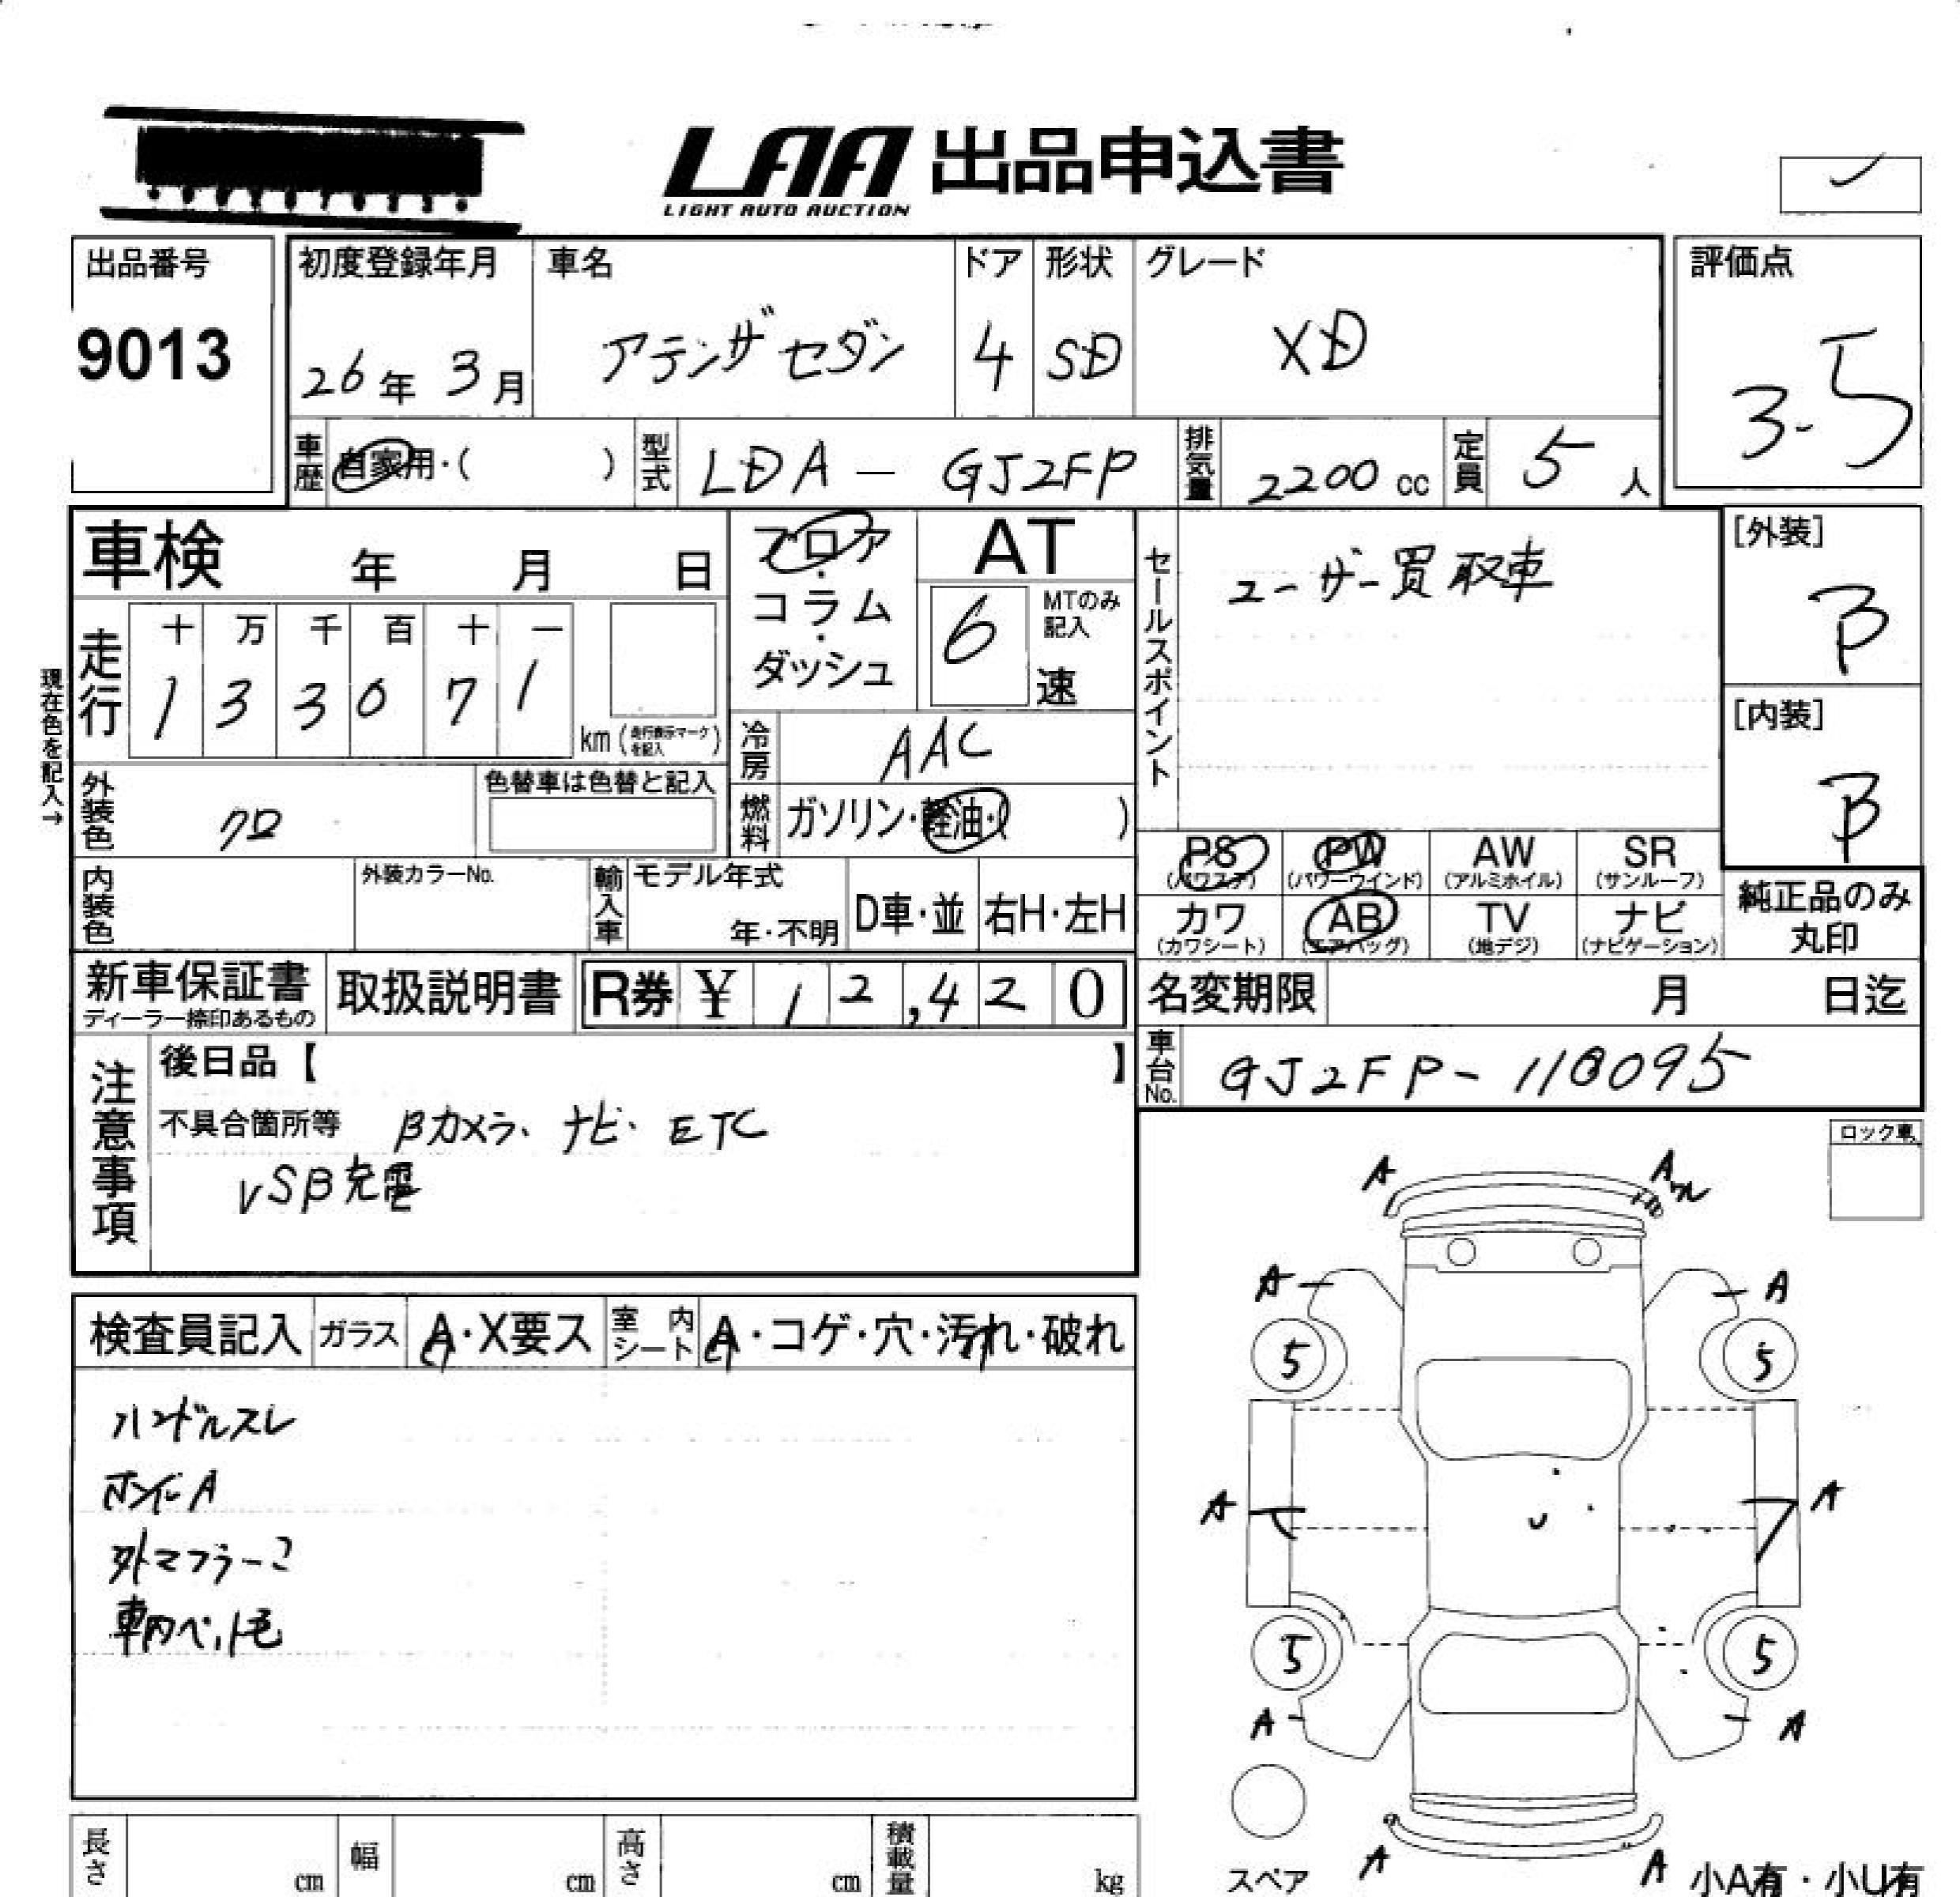 LAA 出品申込書
LIGHT AUTO AUCTION
出品番号
9013
初度登録年月
26年 3月
車名
アテンザセダン
ドア
4
形状
SD
グレード
XD
評価点
3.5
車歴
自家用・( )
型式
LDA - GJ2FP
排気量
2200 cc
定員
5人
車検 年 月 日
フロア・コラム・ダッシュ
AT
6
MTのみ記入
速
セールスポイント
ユーザー買取車
[外装]
B
[内装]
B
現在色を記入→
走行
十 万 千 百 十 一
1 3 3 0 7 1
km(走行表示マークを記入)
冷房
AAC
外装色
クロ
色替車は色替と記入
燃料
ガソリン・軽油・( )
PS
(パワステ)
PW
(パワーウインド)
AW
(アルミホイル)
SR
(サンルーフ)
カワ
(カワシート)
AB
(エアバッグ)
TV
(地デジ)
ナビ
(ナビゲーション)
純正品のみ
丸印
内装色
外装カラーNo.
輸入車
モデル年式
年・不明
D車・並
右H・左H
新車保証書
ディーラー捺印あるもの
取扱説明書
R券 ¥ 1 2,4 2 0
名変期限 月 日迄
車台No.
GJ2FP-118095
注意事項
後日品【 】
不具合箇所等 Bカメラ、ナビ、ETC
VSB充電
ロック車
検査員記入
ガラス
A・X要ス
室内シート
A・コゲ・穴・汚れ・破れ
ハンドルスレ
ホイルA
外マフラーコ
車内ペット毛
A
Aワレ
A
A
5
5
A
A
U
5
5
A
A
A
A
スペア
小A有・小U有
長さ cm
幅 cm
高さ cm
積載量 kg